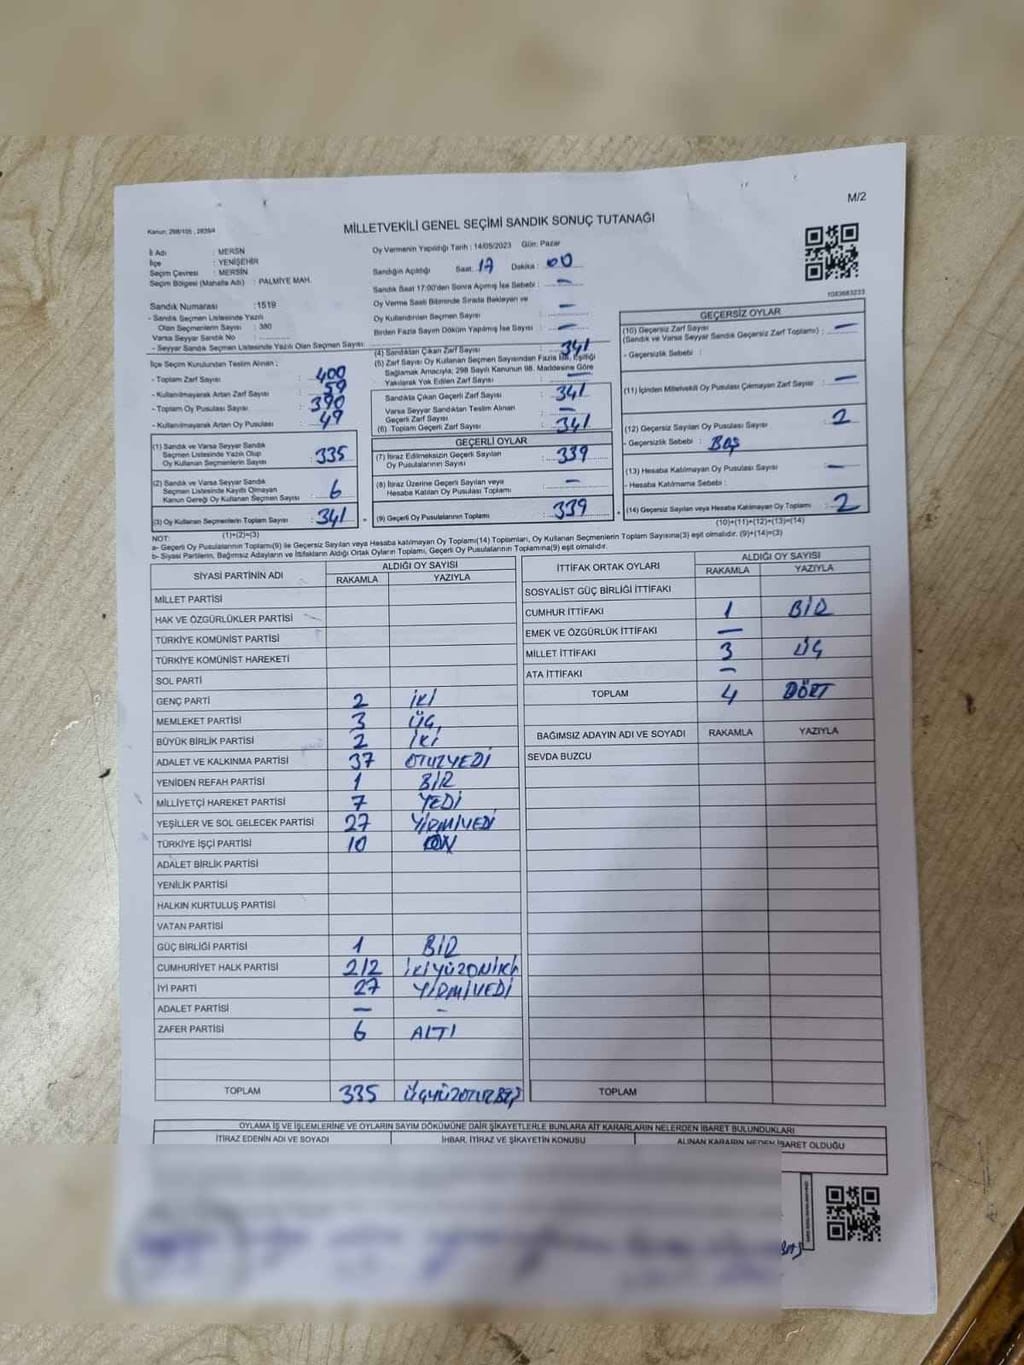 M/2
Kanun: 298/105 , 2839/4
MİLLETVEKİLİ GENEL SEÇİMİ SANDIK SONUÇ TUTANAĞI
İl Adı : MERSİN
İlçe : YENİŞEHİR
Seçim Çevresi : MERSİN
Seçim Bölgesi (Mahalle Adı) : PALMİYE MAH.
Sandık Numarası : 1519
- Sandık Seçmen Listesinde Yazılı
Olan Seçmenlerin Sayısı : 380
Varsa Seyyar Sandık No :
- Seyyar Sandık Seçmen Listesinde Yazılı Olan Seçmen Sayısı :
İlçe Seçim Kurulundan Teslim Alınan ;
- Toplam Zarf Sayısı : 400
- Kullanılmayarak Artan Zarf Sayısı : 59
- Toplam Oy Pusulası Sayısı : 390
- Kullanılmayarak Artan Oy Pusulası : 49
(1) Sandık ve Varsa Seyyar Sandık
Seçmen Listesinde Yazılı Olup
Oy Kullanan Seçmenlerin Sayısı : 335
(2) Sandık ve Varsa Seyyar Sandık
Seçmen Listesinde Kayıtlı Olmayan
Kanun Gereği Oy Kullanan Seçmen Sayısı : 6
(3) Oy Kullanan Seçmenlerin Toplam Sayısı : 341
(1)+(2)=(3)
Oy Vermenin Yapıldığı Tarih : 14/05/2023 Gün: Pazar
Sandığın Açıldığı Saat: 17 Dakika : 00
Sandık Saat 17:00'den Sonra Açılmış İse Sebebi : —
Oy Verme Saati Bitiminde Sırada Bekleyen ve
Oy Kullandırılan Seçmen Sayısı : —
Birden Fazla Sayım Döküm Yapılmış İse Sayısı : —
(4) Sandıktan Çıkan Zarf Sayısı : 341
(5) Zarf Sayısı Oy Kullanan Seçmen Sayısından Fazla İse, Eşitliği
Sağlamak Amacıyla; 298 Sayılı Kanunun 98. Maddesine Göre
Yakılarak Yok Edilen Zarf Sayısı : —
Sandıkta Çıkan Geçerli Zarf Sayısı : 341
Varsa Seyyar Sandıktan Teslim Alınan
Geçerli Zarf Sayısı : —
(6) Toplam Geçerli Zarf Sayısı : 341
GEÇERLİ OYLAR
(7) İtiraz Edilmeksizin Geçerli Sayılan
Oy Pusulalarının Sayısı : 339
(8) İtiraz Üzerine Geçerli Sayılan veya
Hesaba Katılan Oy Pusulası Toplamı : —
(9) Geçerli Oy Pusulalarının Toplamı : 339
1083683233
GEÇERSİZ OYLAR
(10) Geçersiz Zarf Sayısı
(Sandık ve Varsa Seyyar Sandık Geçersiz Zarf Toplamı) : —
- Geçersizlik Sebebi :
(11) İçinden Milletvekili Oy Pusulası Çıkmayan Zarf Sayısı : —
(12) Geçersiz Sayılan Oy Pusulası Sayısı : 2
- Geçersizlik Sebebi : BOŞ
(13) Hesaba Katılmayan Oy Pusulası Sayısı : —
- Hesaba Katılmama Sebebi :
(14) Geçersiz Sayılan veya Hesaba Katılmayan Oy Toplamı : 2
(10)+(11)+(12)+(13)=(14)
NOT:
a- Geçerli Oy Pusulalarının Toplamı(9) ile Geçersiz Sayılan veya Hesaba katılmayan Oy Toplamı(14) Toplamları, Oy Kullanan Seçmenlerin Toplam Sayısına(3) eşit olmalıdır. (9)+(14)=(3)
b- Siyasi Partilerin, Bağımsız Adayların ve İttifakların Aldığı Ortak Oyların Toplamı, Geçerli Oy Pusulalarının Toplamına(9) eşit olmalıdır.
SİYASİ PARTİNİN ADI ALDIĞI OY SAYISI
RAKAMLA YAZIYLA
MİLLET PARTİSİ
HAK VE ÖZGÜRLÜKLER PARTİSİ
TÜRKİYE KOMÜNİST PARTİSİ
TÜRKİYE KOMÜNİST HAREKETİ
SOL PARTİ
GENÇ PARTİ 2 İKİ
MEMLEKET PARTİSİ 3 ÜÇ
BÜYÜK BİRLİK PARTİSİ 2 İKİ
ADALET VE KALKINMA PARTİSİ 37 OTUZYEDİ
YENİDEN REFAH PARTİSİ 1 BİR
MİLLİYETÇİ HAREKET PARTİSİ 7 YEDİ
YEŞİLLER VE SOL GELECEK PARTİSİ 27 YİRMİYEDİ
TÜRKİYE İŞÇİ PARTİSİ 10 ON
ADALET BİRLİK PARTİSİ
YENİLİK PARTİSİ
HALKIN KURTULUŞ PARTİSİ
VATAN PARTİSİ
GÜÇ BİRLİĞİ PARTİSİ 1 BİR
CUMHURİYET HALK PARTİSİ 212 İKİYÜZONİKİ
İYİ PARTİ 27 YİRMİYEDİ
ADALET PARTİSİ — —
ZAFER PARTİSİ 6 ALTI
TOPLAM 335 ÜÇYÜZOTUZBEŞ
İTTİFAK ORTAK OYLARI ALDIĞI OY SAYISI
RAKAMLA YAZIYLA
SOSYALİST GÜÇ BİRLİĞİ İTTİFAKI
CUMHUR İTTİFAKI 1 BİR
EMEK VE ÖZGÜRLÜK İTTİFAKI —
MİLLET İTTİFAKI 3 ÜÇ
ATA İTTİFAKI —
TOPLAM 4 DÖRT
BAĞIMSIZ ADAYIN ADI VE SOYADI RAKAMLA YAZIYLA
SEVDA BUZCU
TOPLAM
OYLAMA İŞ VE İŞLEMLERİNE VE OYLARIN SAYIM DÖKÜMÜNE DAİR ŞİKAYETLERLE BUNLARA AİT KARARLARIN NELERDEN İBARET BULUNDUKLARI
İTİRAZ EDENİN ADI VE SOYADI İHBAR, İTİRAZ VE ŞİKAYETİN KONUSU ALINAN KARARIN NEDEN İBARET OLDUĞU